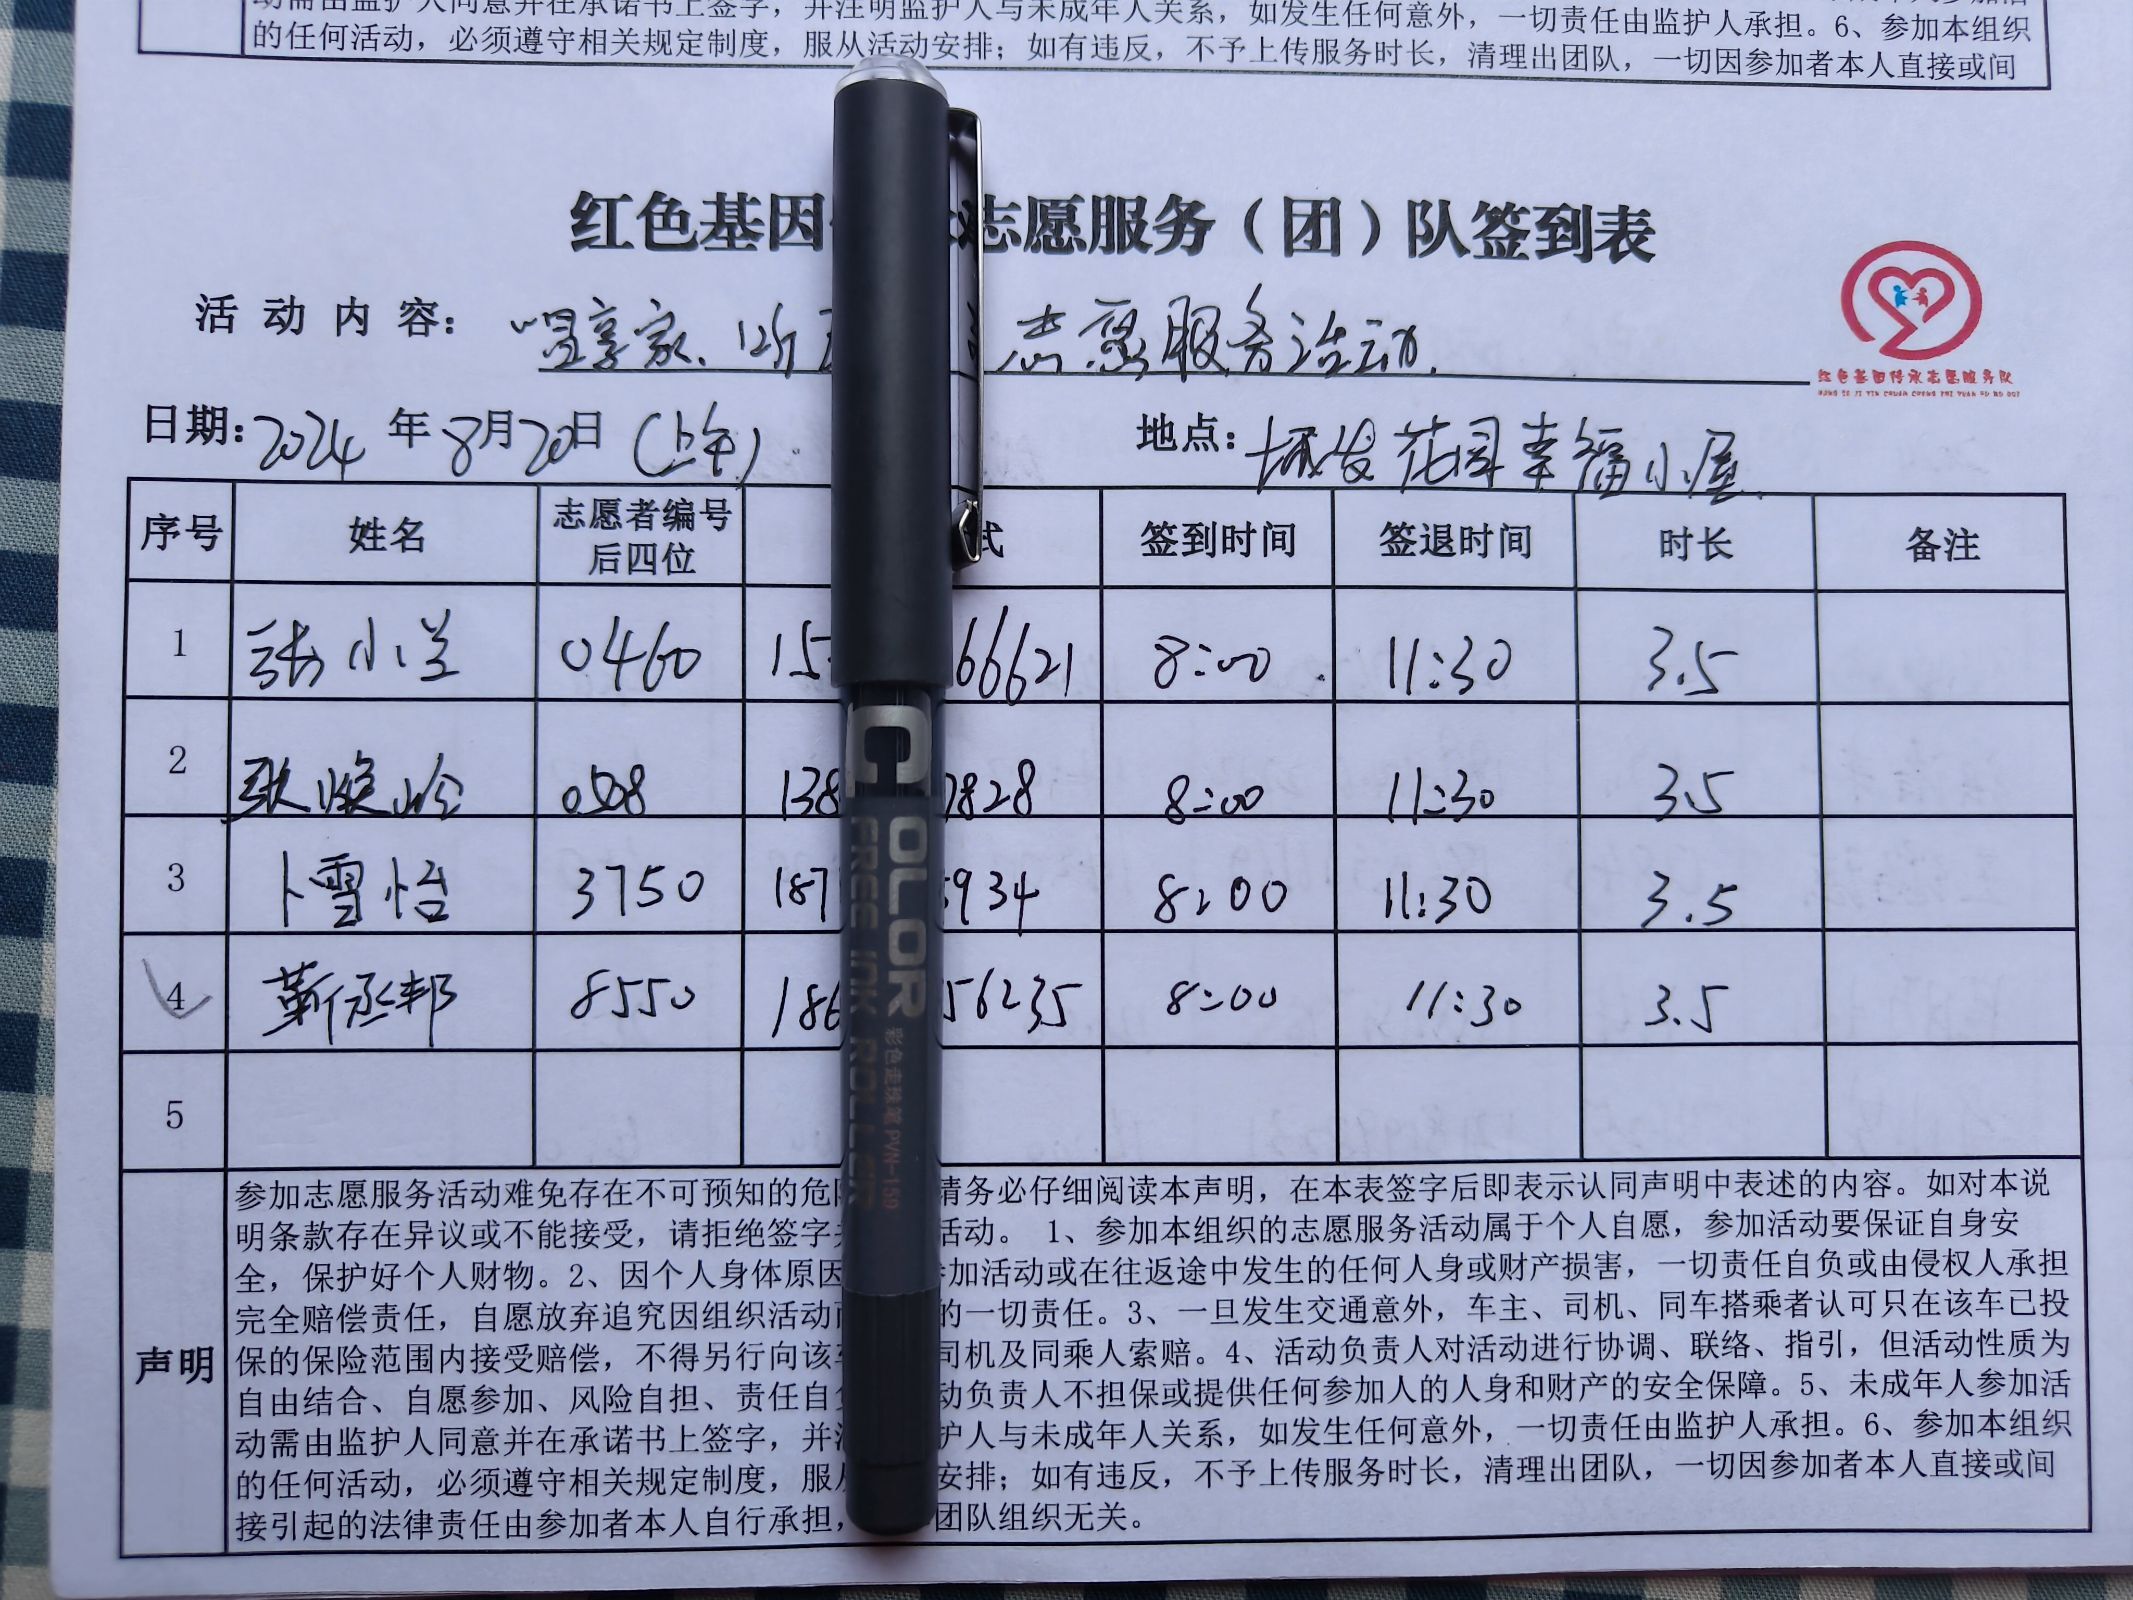 动需由监护人同意并在承诺书上签字，并注明监护人与未成年人关系，如发生任何意外，一切责任由监护人承担。6、参加本组织
的任何活动，必须遵守相关规定制度，服从活动安排；如有违反，不予上传服务时长，清理出团队，一切因参加者本人直接或间
红色基因 志愿服务（团）队签到表
活动内容： 享家、 志愿服务活动.
红色基因传承志愿服务队
HONG SE JI YIN CHUAN CHENG ZHI YUAN FU WU DUI
日期：2024年8月20日（上午） 地点：城发花园幸福小屋
序号 姓名 志愿者编号后四位 式 签到时间 签退时间 时长 备注
1 张小兰 0460 15 66621 8:00 11:30 3.5
2 0508 138 7828 8:00 11:30 3.5
3 卜雪怡 3750 187 934 8:00 11:30 3.5
4 靳丞邦 8550 186 56235 8:00 11:30 3.5
5
声明
参加志愿服务活动难免存在不可预知的危 请务必仔细阅读本声明，在本表签字后即表示认同声明中表述的内容。如对本说
明条款存在异议或不能接受，请拒绝签字 活动。 1、参加本组织的志愿服务活动属于个人自愿，参加活动要保证自身安
全，保护好个人财物。2、因个人身体原因 加活动或在往返途中发生的任何人身或财产损害，一切责任自负或由侵权人承担
完全赔偿责任，自愿放弃追究因组织活动 的一切责任。3、一旦发生交通意外，车主、司机、同车搭乘者认可只在该车已投
保的保险范围内接受赔偿，不得另行向该 司机及同乘人索赔。4、活动负责人对活动进行协调、联络、指引，但活动性质为
自由结合、自愿参加、风险自担、责任自 动负责人不担保或提供任何参加人的人身和财产的安全保障。5、未成年人参加活
动需由监护人同意并在承诺书上签字，并 护人与未成年人关系，如发生任何意外，一切责任由监护人承担。6、参加本组织
的任何活动，必须遵守相关规定制度，服 安排；如有违反，不予上传服务时长，清理出团队，一切因参加者本人直接或间
接引起的法律责任由参加者本人自行承担， 团队组织无关。
COLOR
FREE INK ROLLER
彩色走珠笔 PVN-159